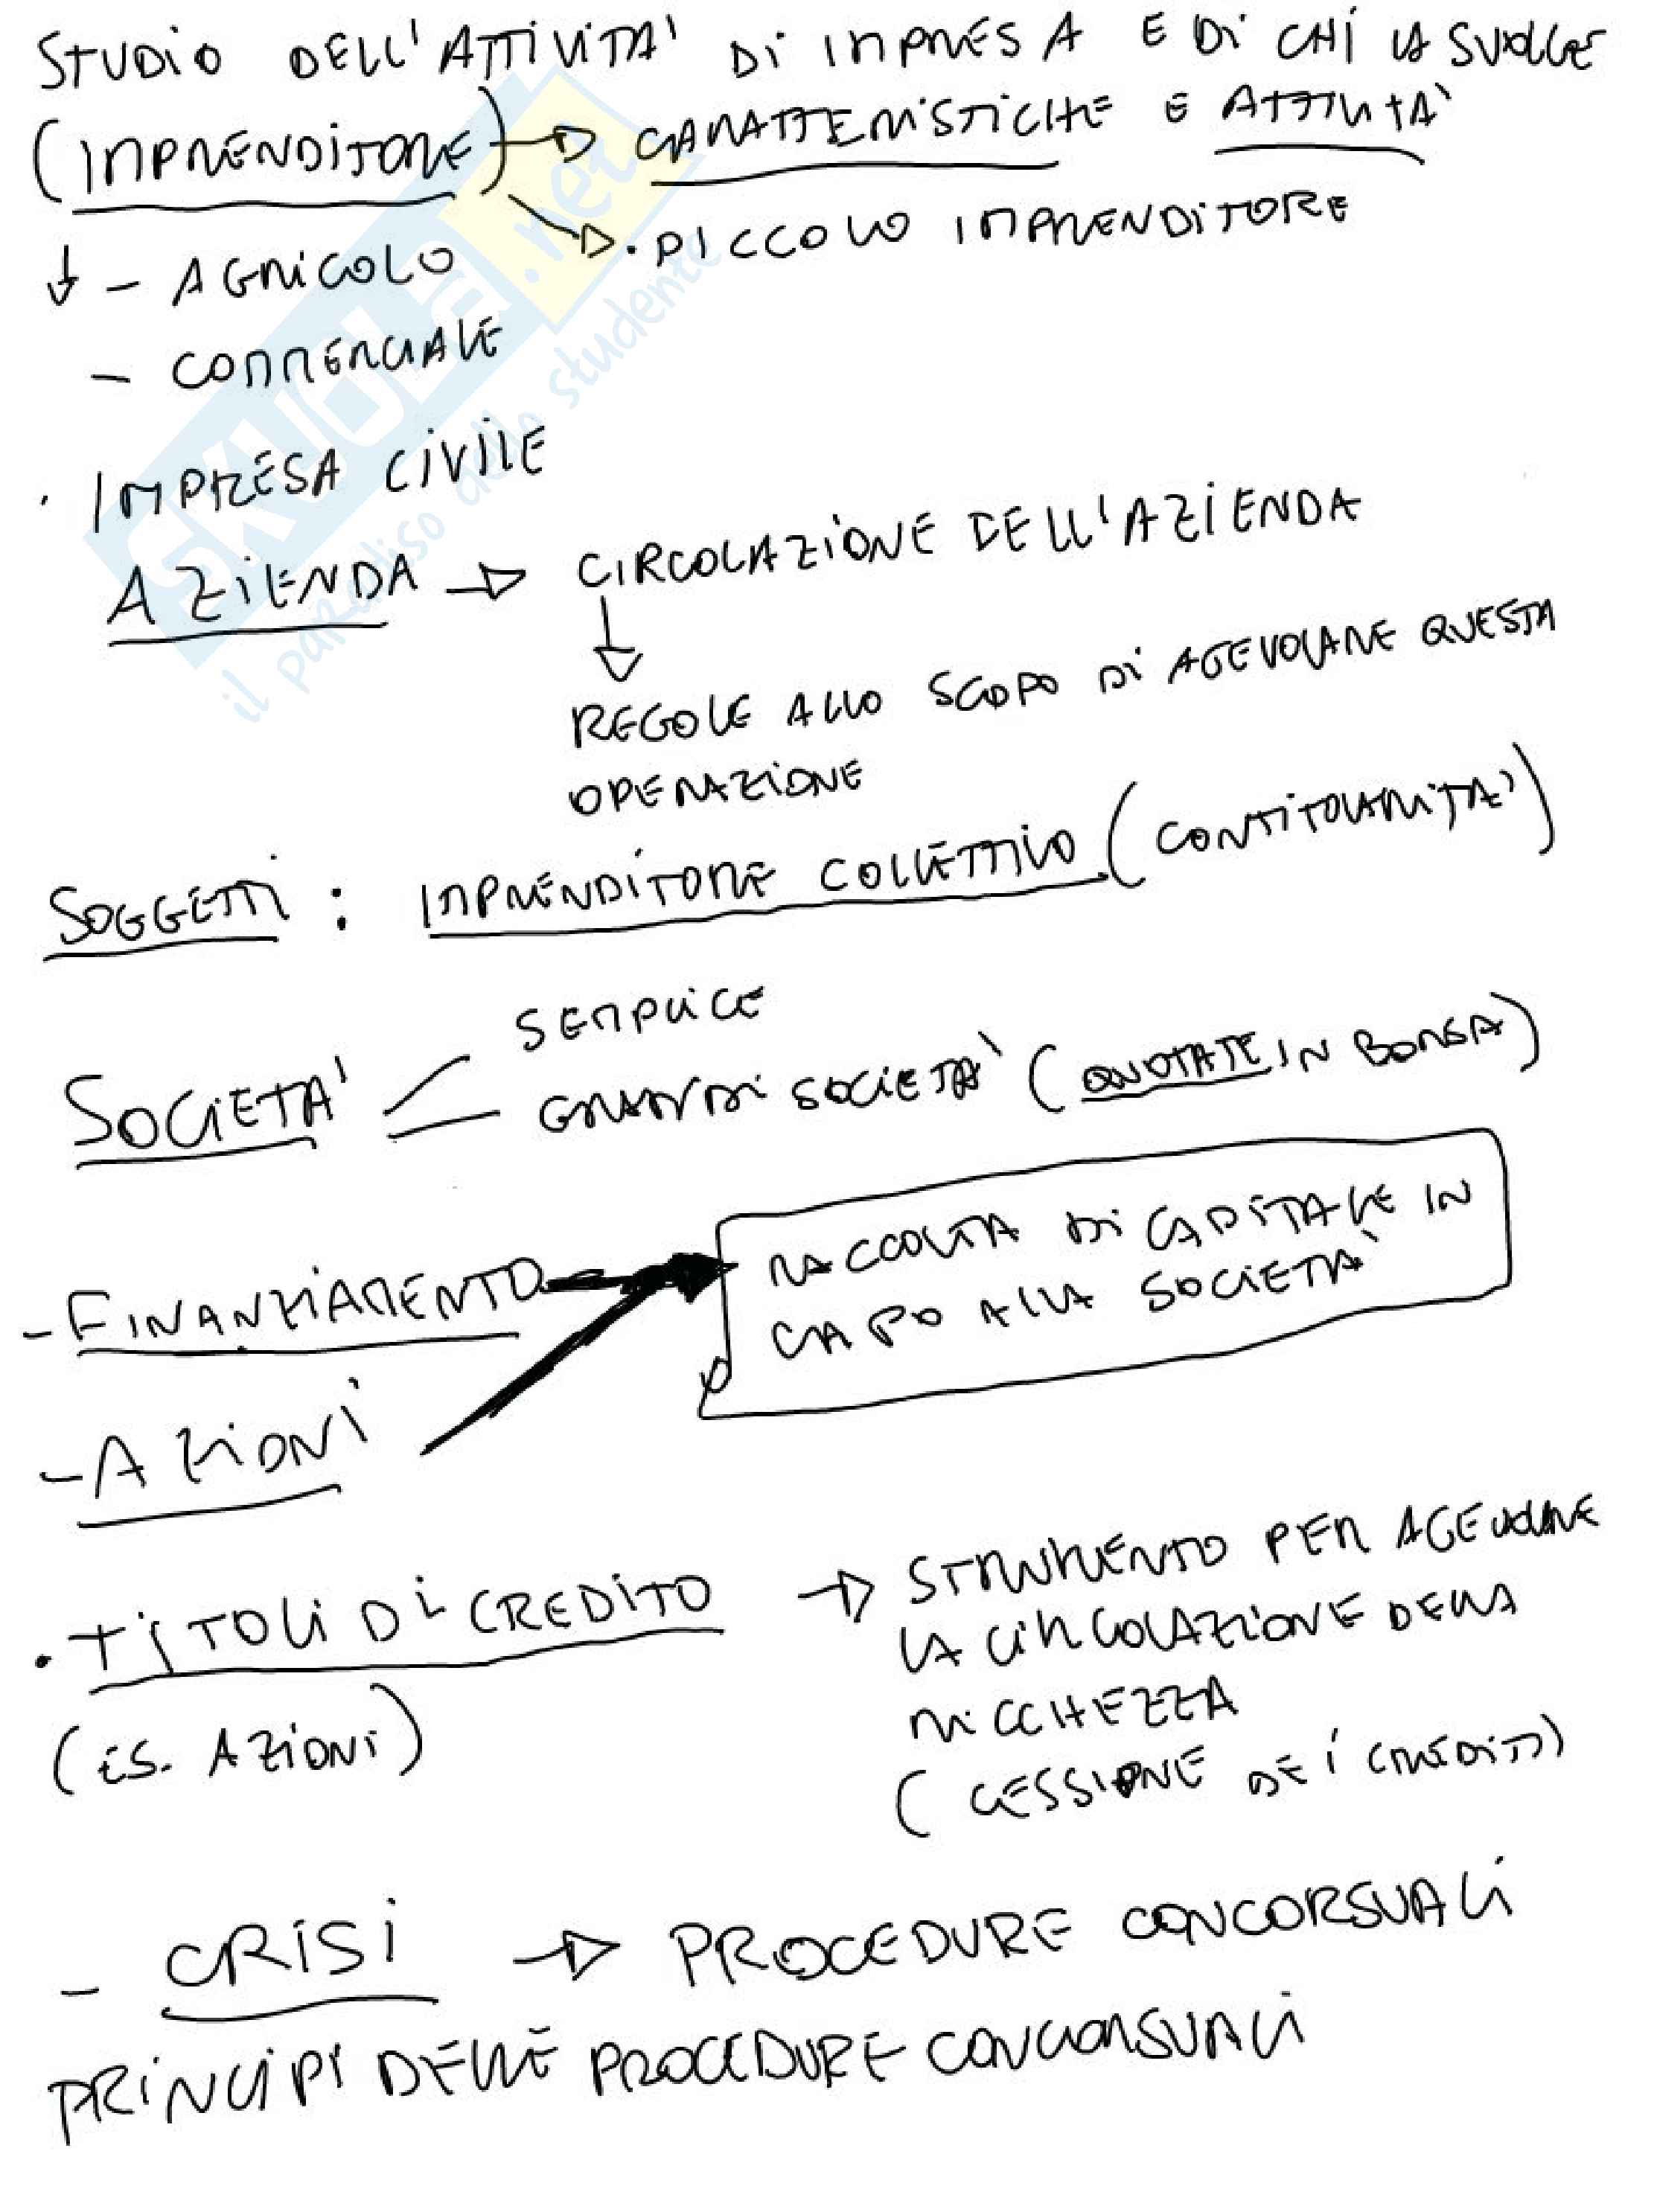 STUDIO DELL'ATTIVITA' DI IMPRESA E DI CHI LA SVOLGE
(IMPRENDITORE) → CARATTERISTICHE E ATTIVITA'
↓ - AGRICOLO → • PICCOLO IMPRENDITORE
- COMMERCIALE
• IMPRESA CIVILE
AZIENDA → CIRCOLAZIONE DELL'AZIENDA
↓
REGOLE ALLO SCOPO DI AGEVOLARE QUESTA
OPERAZIONE
SOGGETTI : IMPRENDITORE COLLETTIVO (CONTITOLARITA')
SEMPLICE
SOCIETA' GRANDI SOCIETA' (QUOTATE IN BORSA)
RACCOLTA DI CAPITALE IN
CAPO ALLA SOCIETA'
- FINANZIAMENTO
- AZIONI
• TITOLI DI CREDITO → STRUMENTO PER AGEVOLARE
LA CIRCOLAZIONE DELLA
RICCHEZZA
(ES. AZIONI)
(CESSIONE DEI CREDITI)
- CRISI → PROCEDURE CONCORSUALI
PRINCIPI DELLE PROCEDURE CONCORSUALI
SKUOLA.net
il paradiso dello studente